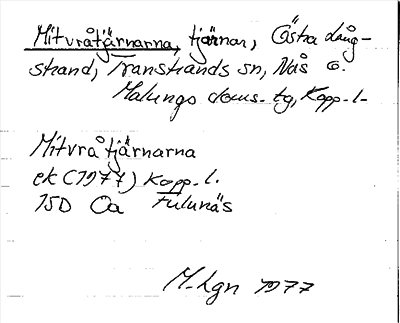 Mitvråtjärnarna, tjärnar, Östra Lång-
strand, Transtrands sn, Nås o.
Malungs doms. tg, Kopp. l.
Mitvråtjärnarna
ek (1977) Kopp. l.
15D Ca Fulunäs
M-Lgn 1977